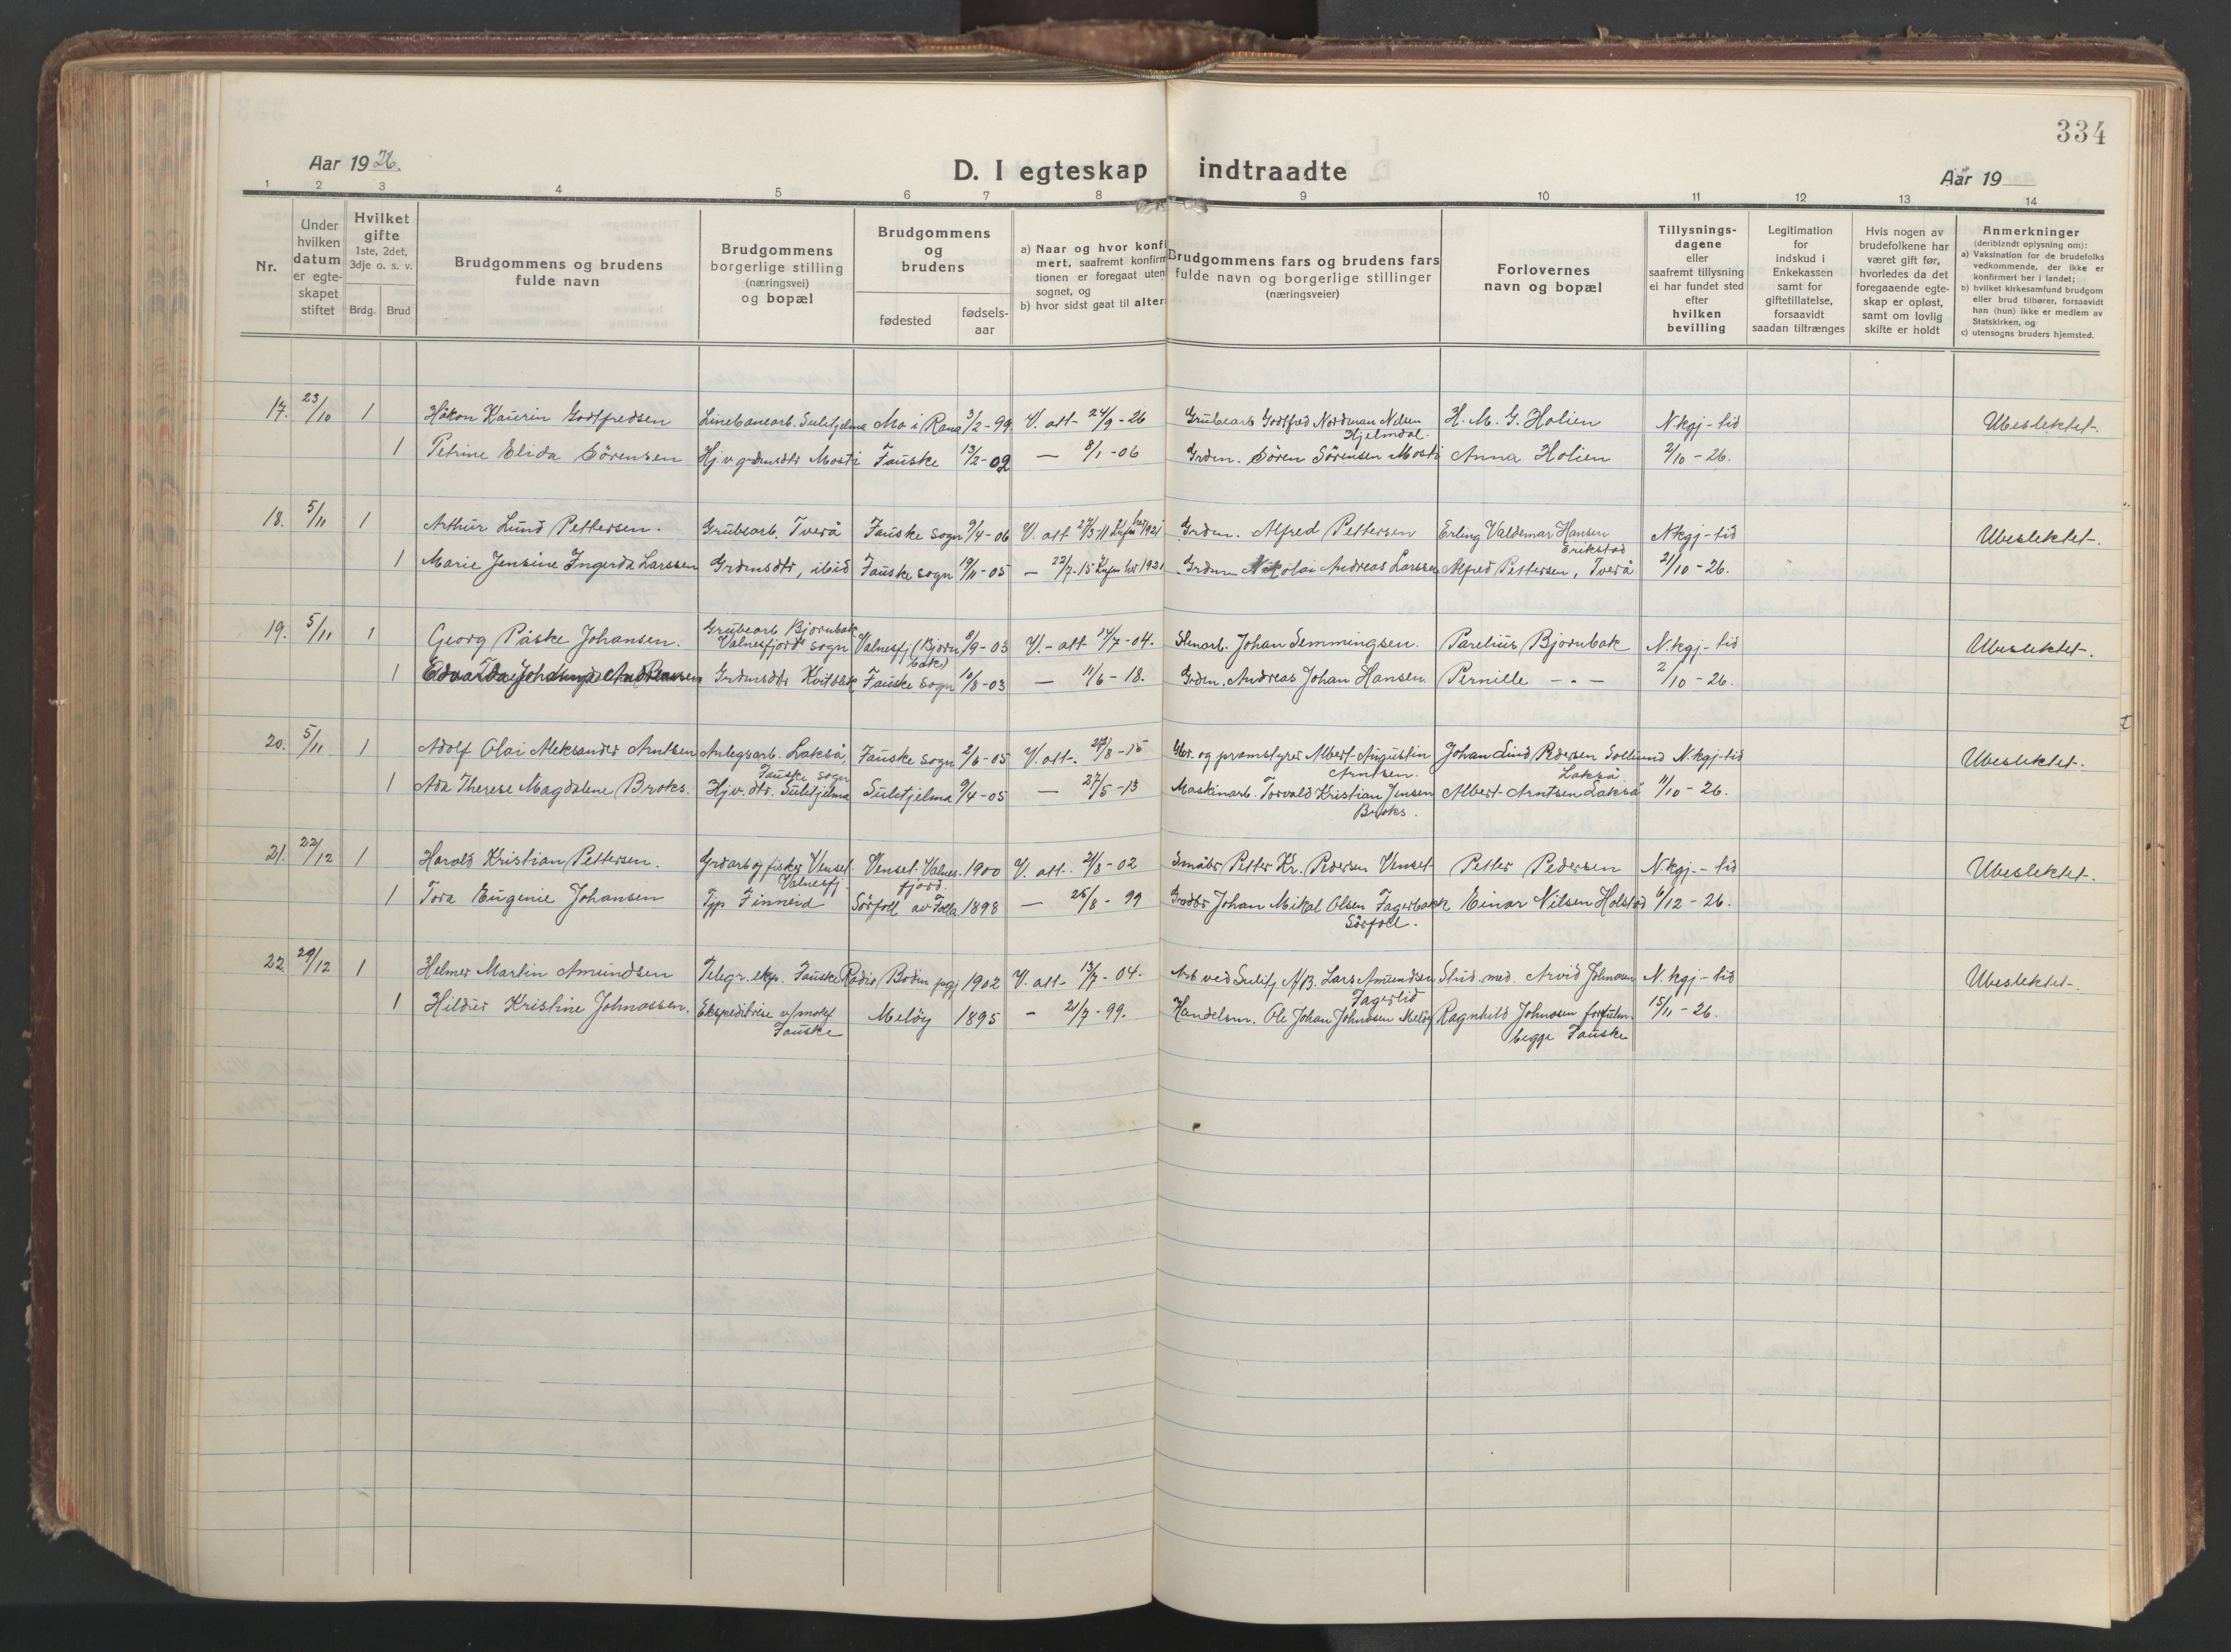 334
Aar 1926.
D. I egteskap indtraadte
Aar 19
1 2 3 4 5 6 7 8 9 10 11 12 13 14
Nr.
Under hvilken datum er egteskapet stiftet
Hvilket gifte 1ste, 2det, 3dje o. s. v.
Brdg. Brud
Brudgommens og brudens fulde navn
Brudgommens borgerlige stilling (næringsvei) og bopæl
Brudgommens og brudens
fødested fødsels-aar
a) Naar og hvor konfi
mert, saafremt konfirm
tionen er foregaat uten
sognet, og
b) hvor sidst gaat til alter
Brudgommens fars og brudens fars
fulde navn og borgerlige stillinger
(næringsveier)
Forlovernes
navn og bopæl
Tillysnings-
dagene
eller
saafremt tillysning
ei har fundet sted
efter
hvilken
bevilling
Legitimation
for
indskud i
Enkekassen
samt for
giftetillatelse,
forsaavidt
saadan tiltrænges
Hvis nogen av
brudefolkene har
været gift før,
hvorledes da det
foregaaende egte-
skap er opløst,
samt om lovlig
skifte er holdt
Anmerkninger
(deriblandt oplysning om):
a) Vaksination for de brudefolks
vedkommende, der ikke er
konfirmert her i landet;
b) hvilket kirkesamfund brudgom
eller brud tilhører, forsaavidt
han (hun) ikke er medlem av
Statskirken, og
c) utensogns bruders hjemsted.
17. 23/10 1 Håkon Kaurin Godtfredsen Linebanearb. Sulitjelma Mo i Rana 3/2-99 V. att- 24/9-26 Grubearb Godtfred Nordman Nilsen Hjelmdal. H. M. G. Holien N.kgj-tid Ubeslektet.
1 Petrine Elida Sörensen Hj.v grdmsdtr Mosti Fauske 13/2-02 — 8/1-06 Grdm. Sören Sörensen Mosti Anna Holien 2/10-26.
18. 5/11 1 Arthur Lund Pettersen. Grubearb. Tverå Fauske sogn 9/4-06 V. att 27/3-11 her 1921 Grdm. Alfred Pettersen Erling Valdemar Hansen Erikstad N.kgj-tid Ubeslektet.
1 Marie Jensine Ingerda Larssen Grdmsdtr, ibid Fauske sogn 19/11-05 — 22/7.15 her 1921 Grdm Nikolai Andreas Larssen Alfred Pettersen, Tverå 21/10-26.
19. 5/11 1 Georg Påske Johansen. Grubearb Bjørnbak Valnesfjord sogn Valnesfj (Bjørnbak) 9/9-03 V.-att 14/7-04. Johan Lemmingsen. Parelius Bjørnbak N.kgj-tid Ubeslektet.
1 Grdmsdtr Kvitblik Fauske sogn 10/8-03 — 11/6-18. Grdm. Andreas Johan Hansen. Pernille — - — 2/10-26.
20. 5/11 1 Adolf Olai Aleksander Arntsen Anlegsarb. Lakså, Fauske sogn Fauske sogn 2/6-05 V. att-. 27/8-15 Gbr. og pramstyrer Albert Augustin Arntsen. Johan Lund Pedersen Sollund Lakså N.kgj-tid Ubeslektet.
1 Ada Therese Magdalene Broks. Hjv. dtr. Sulitjelma Sulitjelma 9/4-05 — 27/5-13 Maskinarb. Torvald Kristian Jensen Broks. Albert Arntsen Lakså 11/10-26.
21. 22/12 1 Harald Kristian Pettersen. Grdarb og fisker Venset Valnesfj. Venset Valnesfjord. 1900 V. att. 21/8-02 Småbr Petter Kr. Pedersen Venset Petter Pedersen N.kgj.-tid Ubeslektet.
1 Tora Eugenie Johansen Tjp Finneid Sörfoll av Folla 1898 — 25/8-99 Grdbr Johan Mikal Olsen Fagerbakk Sörfoll. Einar Nilsen Holstad 6/12-26.
22. 29/12 1 Helmer Martin Amundsen Telegr. eksp. Fauske Radio Bodin pgj 1902 V. att- 13/7-04. Arb ved Sulitj A/B. Lars Amundsen Fagerlid Stud. med. Arvid Johnsen N.kgj-tid Ubeslektet.
1 Hildur Kristine Johnassen. Ekspeditrise Fauske Melöy 1895 - 21/7-99. Handelsm. Ole Johan Johnsen Melöy Ragnhild Johnsen begge Fauske 15/11-26.